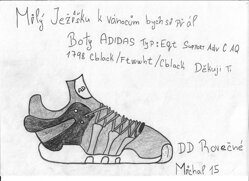 Milý Ježíšku k vánocům bych si přál
Boty ADIDAS Typ: Eqt Support Adv C A Q
1798 Cblack/Ftwwht/Cblack Děkuji Ti
DD Rovečné
Michal 15